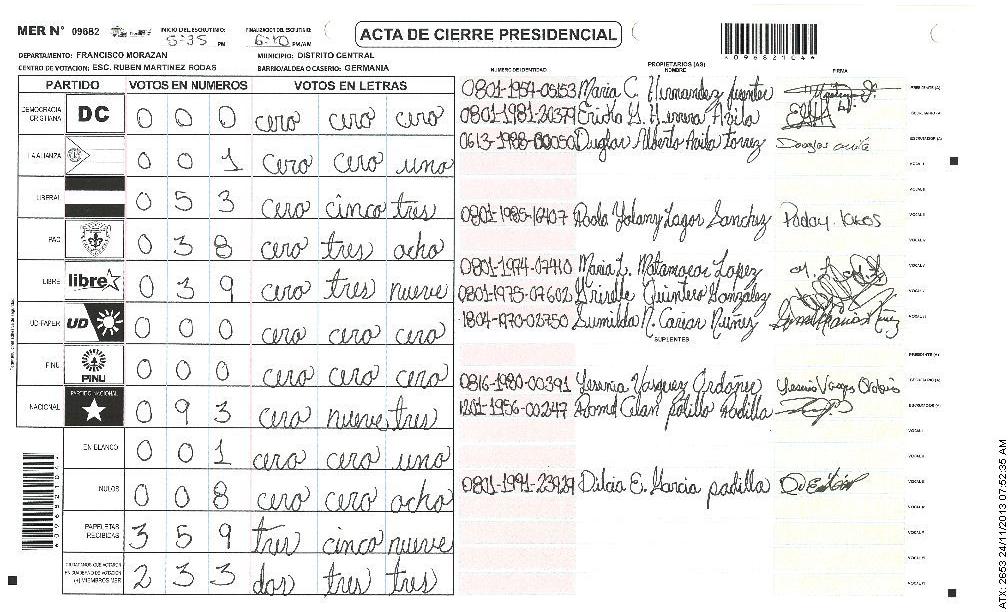 MER N° 09682 INICIO DEL ESCRUTINIO: 5:35 PM FINALIZACION DEL ESCRUTINIO: 6:40 PM/AM ACTA DE CIERRE PRESIDENCIAL *09682104*
DEPARTAMENTO: FRANCISCO MORAZAN MUNICIPIO: DISTRITO CENTRAL
CENTRO DE VOTACION: ESC. RUBEN MARTINEZ RODAS BARRIO/ALDEA O CASERIO: GERMANIA
PARTIDO VOTOS EN NUMEROS VOTOS EN LETRAS
DEMOCRACIA CRISTIANA DC 0 0 0 cero cero cero
LA ALIANZA 0 0 1 cero cero uno
LIBERAL 0 5 3 cero cinco tres
PAC 0 3 8 cero tres ocho
LIBRE libre 0 3 9 cero tres nueve
UD-FAPER UD 0 0 0 cero cero cero
PINU PINU 0 0 0 cero cero cero
NACIONAL PARTIDO NACIONAL 0 9 3 cero nueve tres
EN BLANCO 0 0 1 cero cero uno
NULOS 0 0 8 cero cero ocho
PAPELETAS RECIBIDAS 3 5 9 tres cinco nueve
CIUDADANOS QUE VOTARON EN CUADERNO DE VOTACION (+) MIEMBROS MER 2 3 3 dos tres tres
NUMERO DE IDENTIDAD PROPIETARIOS (AS) NOMBRE FIRMA
0801-1954-05153 Maria C. Hernandez fuentes PRESIDENTE (A)
0801-1981-20379 Ericka G. Herrera Avila SECRETARIO (A)
0613-1988-00050 Duglas Alberto Avila Torrez Douglas avila ESCRUTADOR (A)
VOCAL I
0801-1985-16407 Paola Yolany Lagos Sanchez
0801-1974-07410 Maria L. Matamoros Lopez
0801-1975-07602 Griselle Quintero Gonzalez
1804-1970-02750 Sumilda N. Carias Nuñez
SUPLENTES
PRESIDENTE (A)
0816-1980-00391 Yesenia Vasquez Ordoñez SECRETARIO (A)
1201-1956-00247 padilla ESCRUTADOR (A)
0801-1991-23929 Dilcia E. Garcia padilla
ATX: 2653 24/11/2013 07:52:35 AM